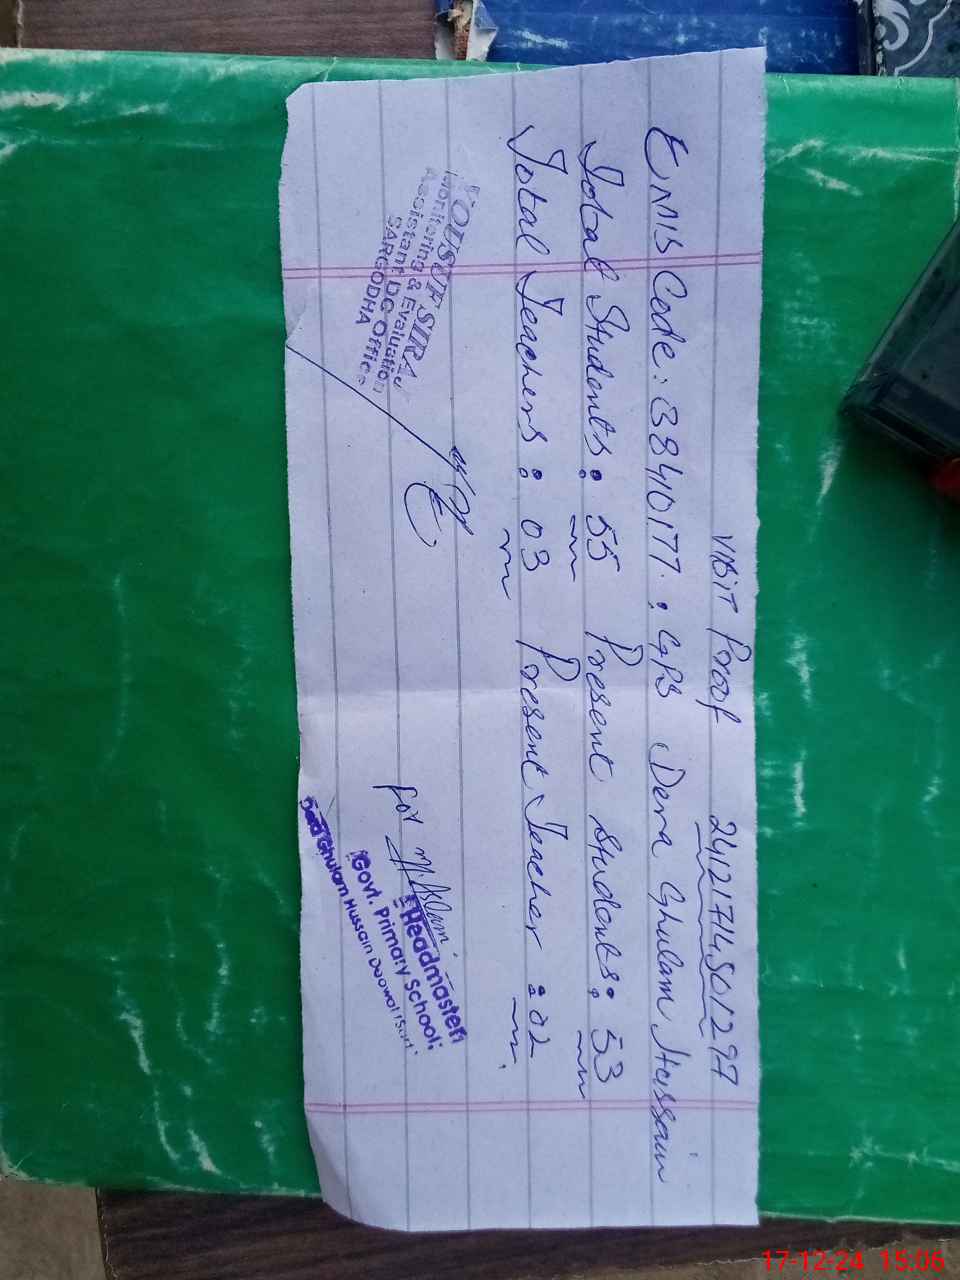 Visit Proof 24121714501297
EMIS Code: 38410177 : GPS Dera Ghulam Hussain
Total Students: 55 Present Students: 53
Total Teachers: 03 Present Teacher: 02
YOUSUF SIRAJ
Monitoring & Evaluation
Assistant DC Office
SARGODHA
for M. Aslam
Headmaster
Govt. Primary School:
Dera Ghulam Hussain
17-12-24 15:06